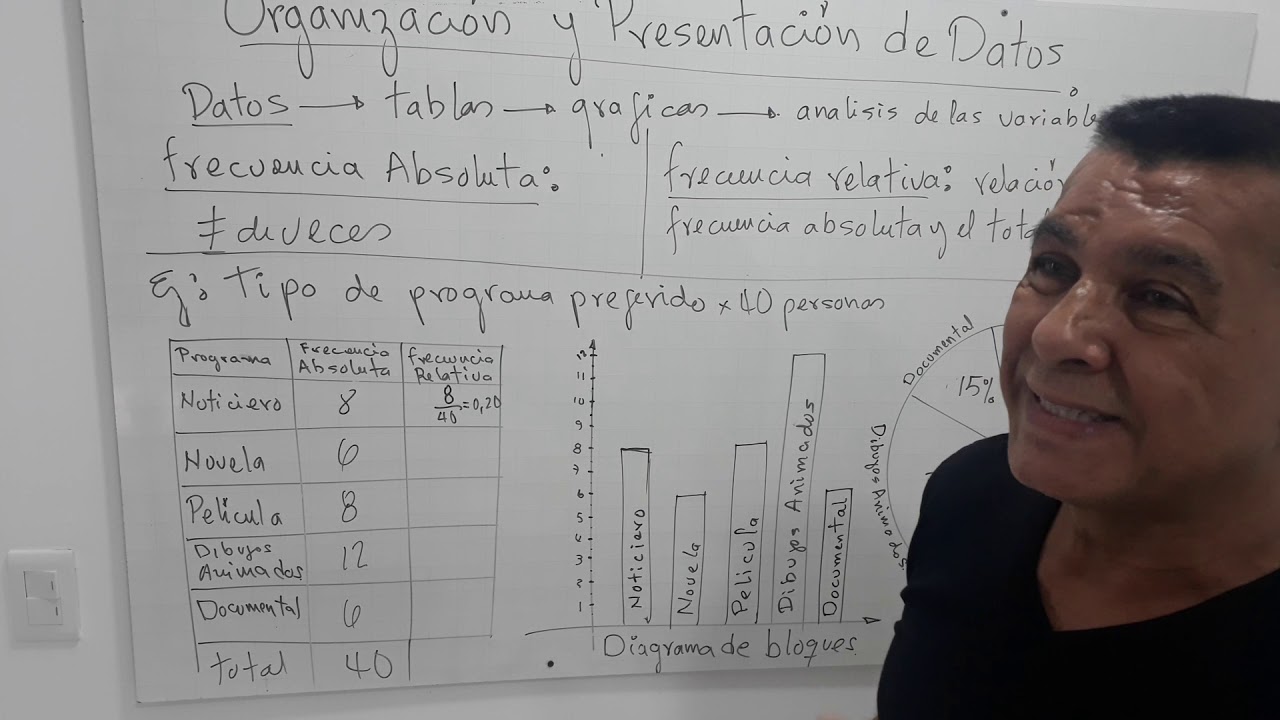 Organización y Presentación de Datos
Datos → tablas → graficas → analisis de las variable
frecuencia Absoluta:
≠ de veces
frecuencia relativa: relación
frecuencia absoluta y el total
Ej: Tipo de programa preferido x 40 personas
Programa Frecuencia Absoluta frecuencia Relativa
Noticiero 8 8/40 = 0,20
Novela 6
Pelicula 8
Dibujos Animados 12
Documental 6
total 40
12
11
10
9
8
7
6
5
4
3
2
1
Noticiero
Novela
Pelicula
Dibujos Animados
Documental
Diagrama de bloques
Documental
15%
Dibujos Animados